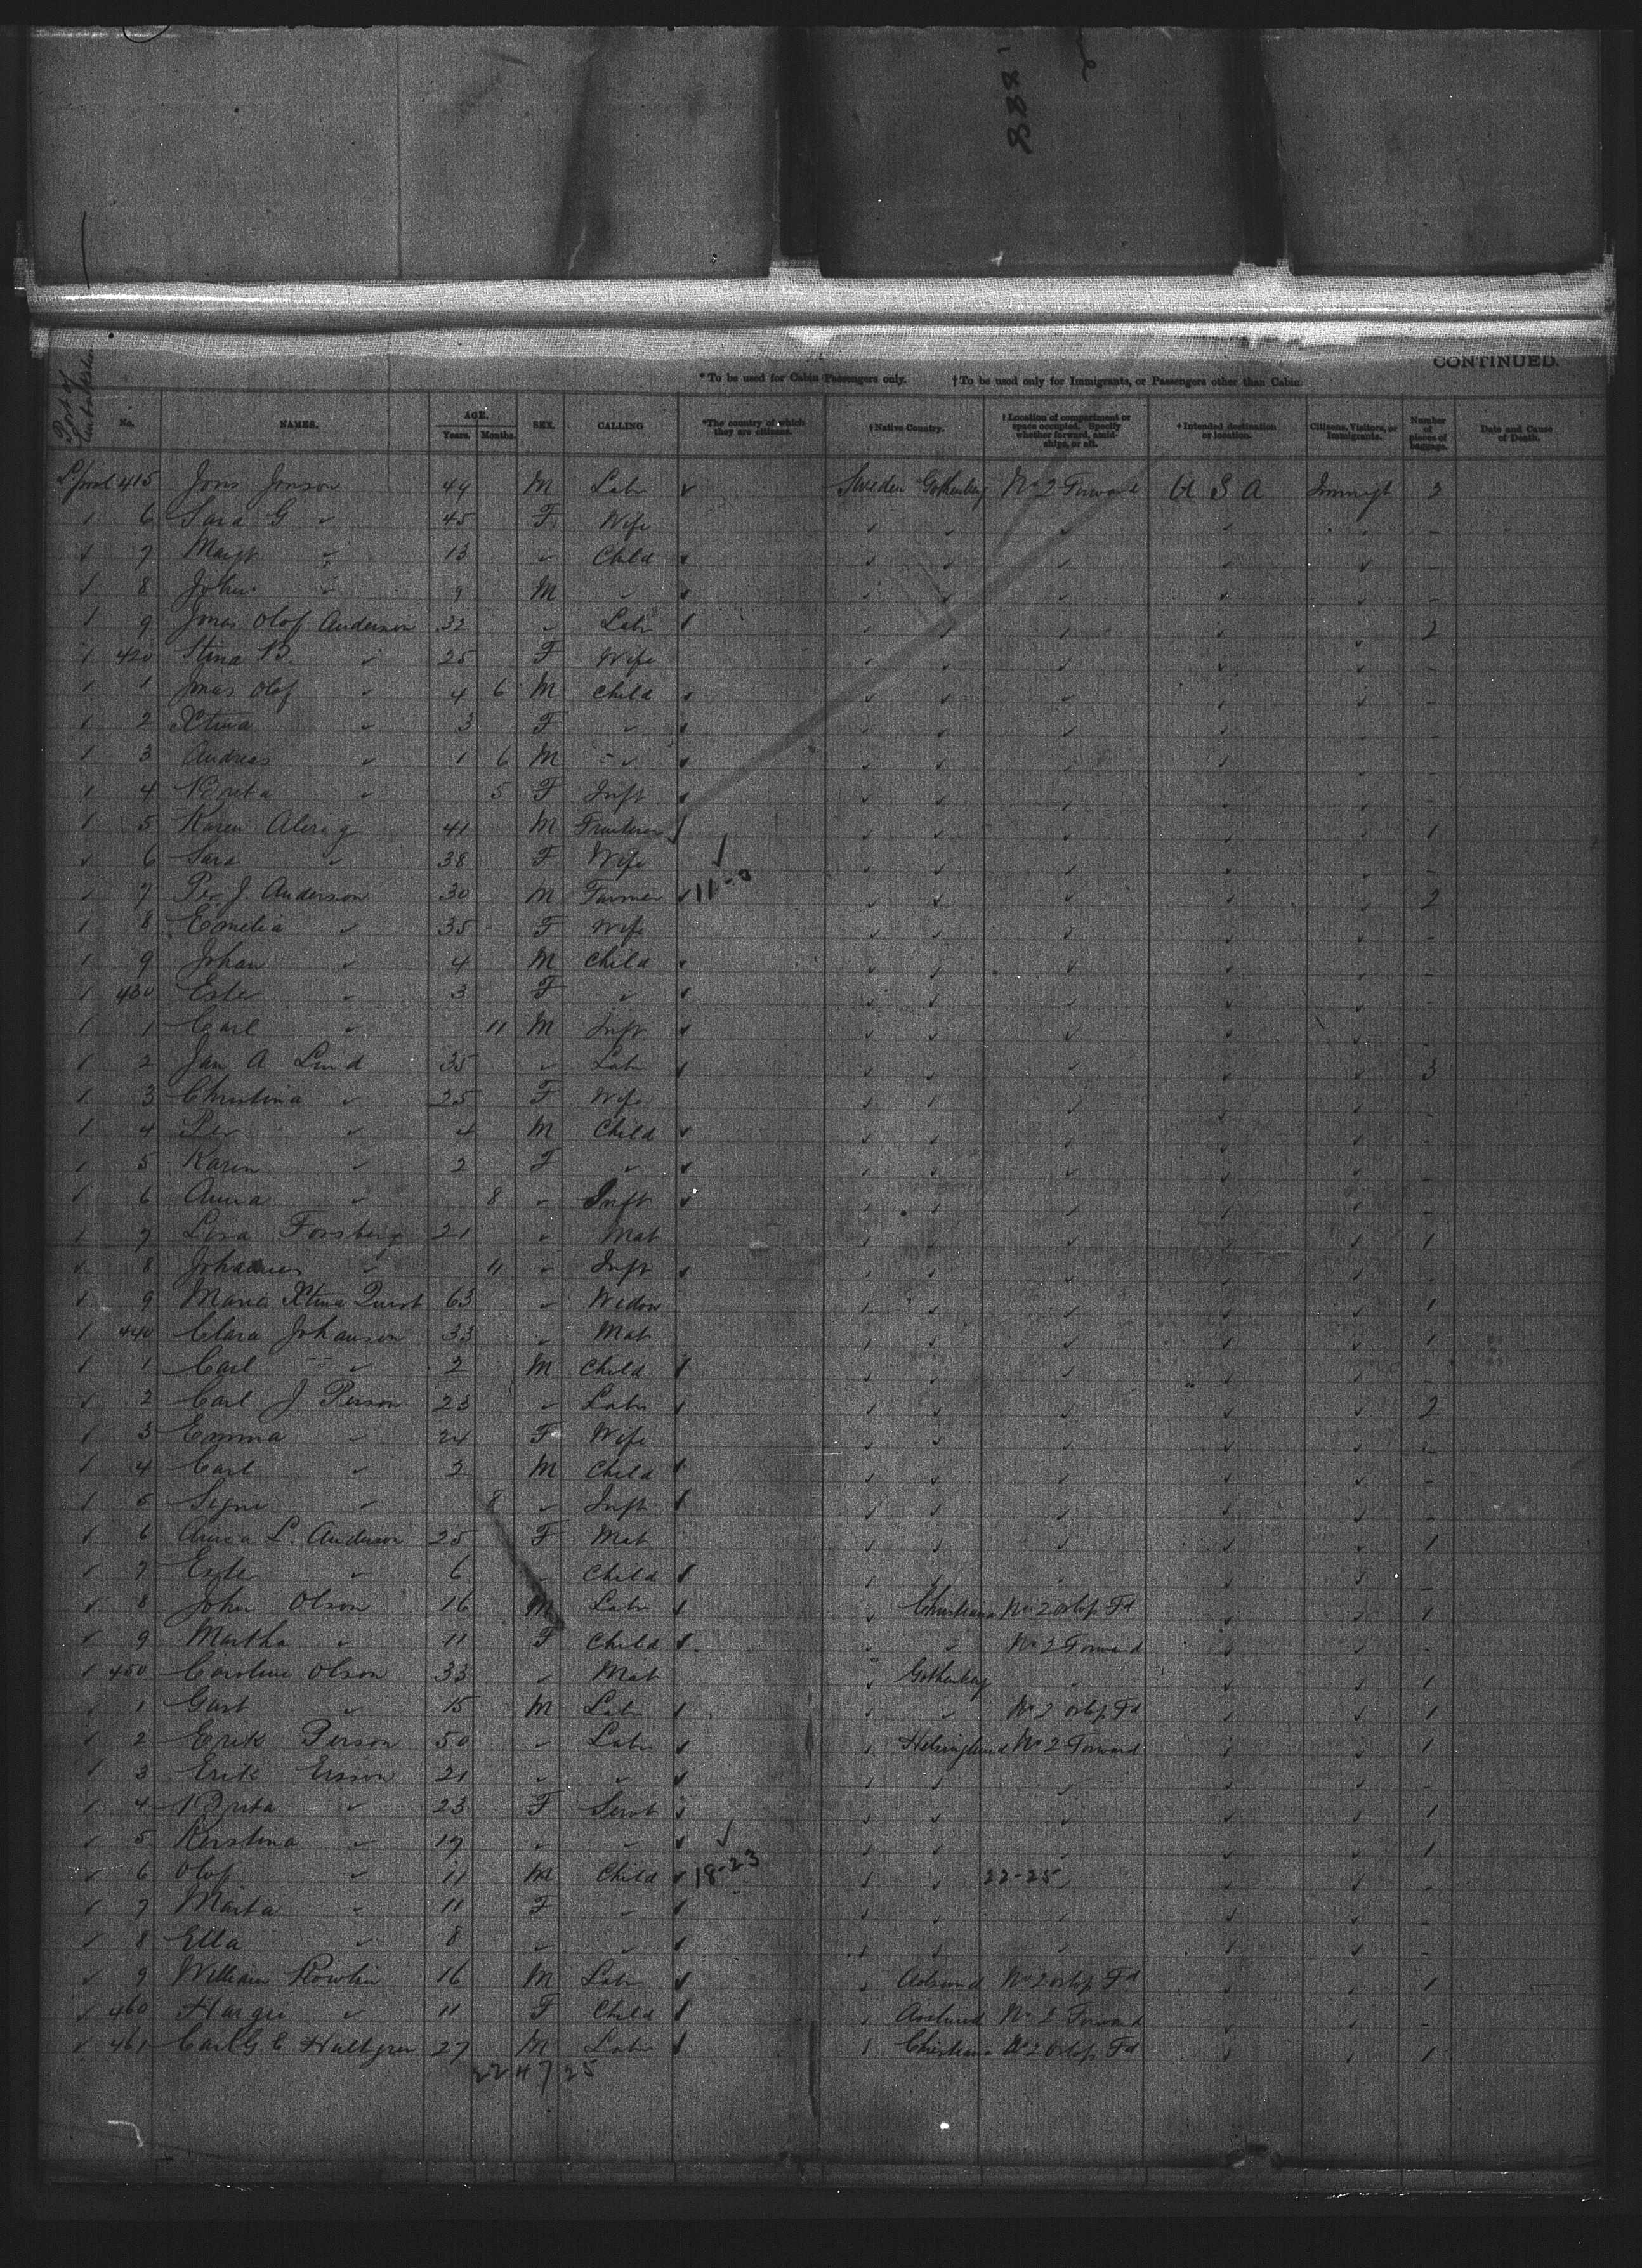 1888
CONTINUED.
* To be used for Cabin Passengers only. † To be used only for Immigrants, or Passengers other than Cabin.
Port of Embarkation No. NAMES. AGE. Years. Months. SEX. CALLING *The country of which they are citizens. †Native Country. †Location of compartment or space occupied. Specify whether forward, amidships, or aft. †Intended destination or location. Citizens, Visitors, or Immigrants. Number of pieces of baggage. Date and Cause of Death.
L'pool 415 Jons Jonson 49 M Labr ✓ Sweden Gothenbg No 2 Forward U S A Immigt 2
6 Sara G ✓ 45 F Wife
7 Margt ✓ 13 ✓ Child
8 John ✓ 9 M ✓
9 Jonas Olof Anderson 32 ✓ Labr 2
420 Stina B. ✓ 25 F Wife
1 Jonas Olof ✓ 4 6 M Child
2 Xtina ✓ 3 F ✓
3 Andreas ✓ 1 6 M ✓
4 Brita ✓ 5 F Inft
5 Karen 41 M 1
6 Sara ✓ 38 F Wife
7 Per J Anderson 30 M Farmer 11-0 2
8 Emelia ✓ 35 F Wife
9 Johan ✓ 4 M Child
430 Ester ✓ 3 F ✓
1 Carl ✓ 11 M Inft
2 Jan A Lind 35 ✓ Labr 3
3 Christina ✓ 25 F Wife
4 Per ✓ 4 M Child
5 Karin ✓ 2 F ✓
6 Anna ✓ 8 ✓ Inft
7 Lisa Forsberg 21 ✓ Mat 1
8 Johannes ✓ 11 ✓ Inft
9 Maria Xtina Qvist 63 ✓ Widow 1
440 Clara Johanson 33 ✓ Mat 1
1 Carl ✓ 2 M Child
2 Carl J Person 23 ✓ Labr 2
3 Emma ✓ 24 F Wife
4 Carl ✓ 2 M Child
5 Signe ✓ 8 ✓ Inft
6 Anna L. Anderson 25 F Mat 1
7 Ester ✓ 6 ✓ Child
8 John Olson 16 M Labr Christiana No 2 orlop Fd 1
9 Martha ✓ 11 F Child ✓ No 2 Forward
450 Caroline Olson 33 ✓ Mat Gothenbg ✓ 1
1 Gust ✓ 15 M Labr ✓ No 2 orlop Fd 1
2 Erik Person 50 ✓ Labr Helsingland No 2 Forward 1
3 Erik Ersson 21 ✓ ✓
4 Brita ✓ 23 F Servt 1
5 Kerstina ✓ 19 ✓ ✓ 1
6 Olof ✓ 11 M Child 18-23 22-25
7 Marta ✓ 11 F ✓
8 Ella ✓ 8 ✓ ✓
9 William 16 M Labr No 2 orlop Fd 1
460 ✓ 11 F Child No 2 Forward
461 Carl G. E Hultgren 27 M Labr Christiana No 2 Orlop Fd 1
22 47 25